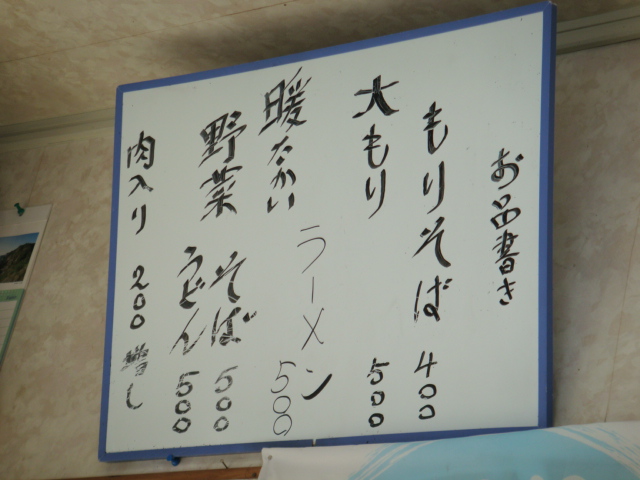 お品書き
もりそば 400
大もり 500
ラーメン 500
暖たかい
野菜 そば 500
うどん 500
肉入り 200 増し